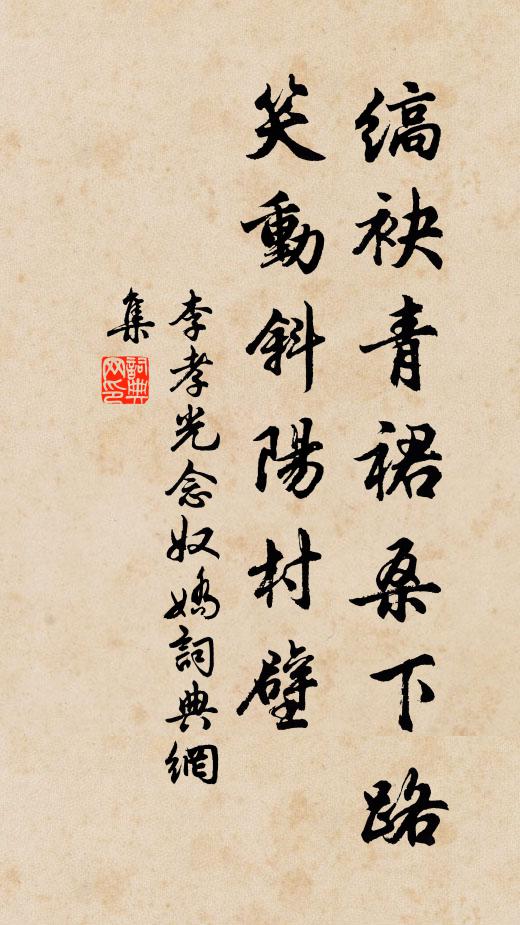 缟袂青裙桑下路
笑動斜陽村壁
李孝光念奴嬌詞典網
集
詞典网印